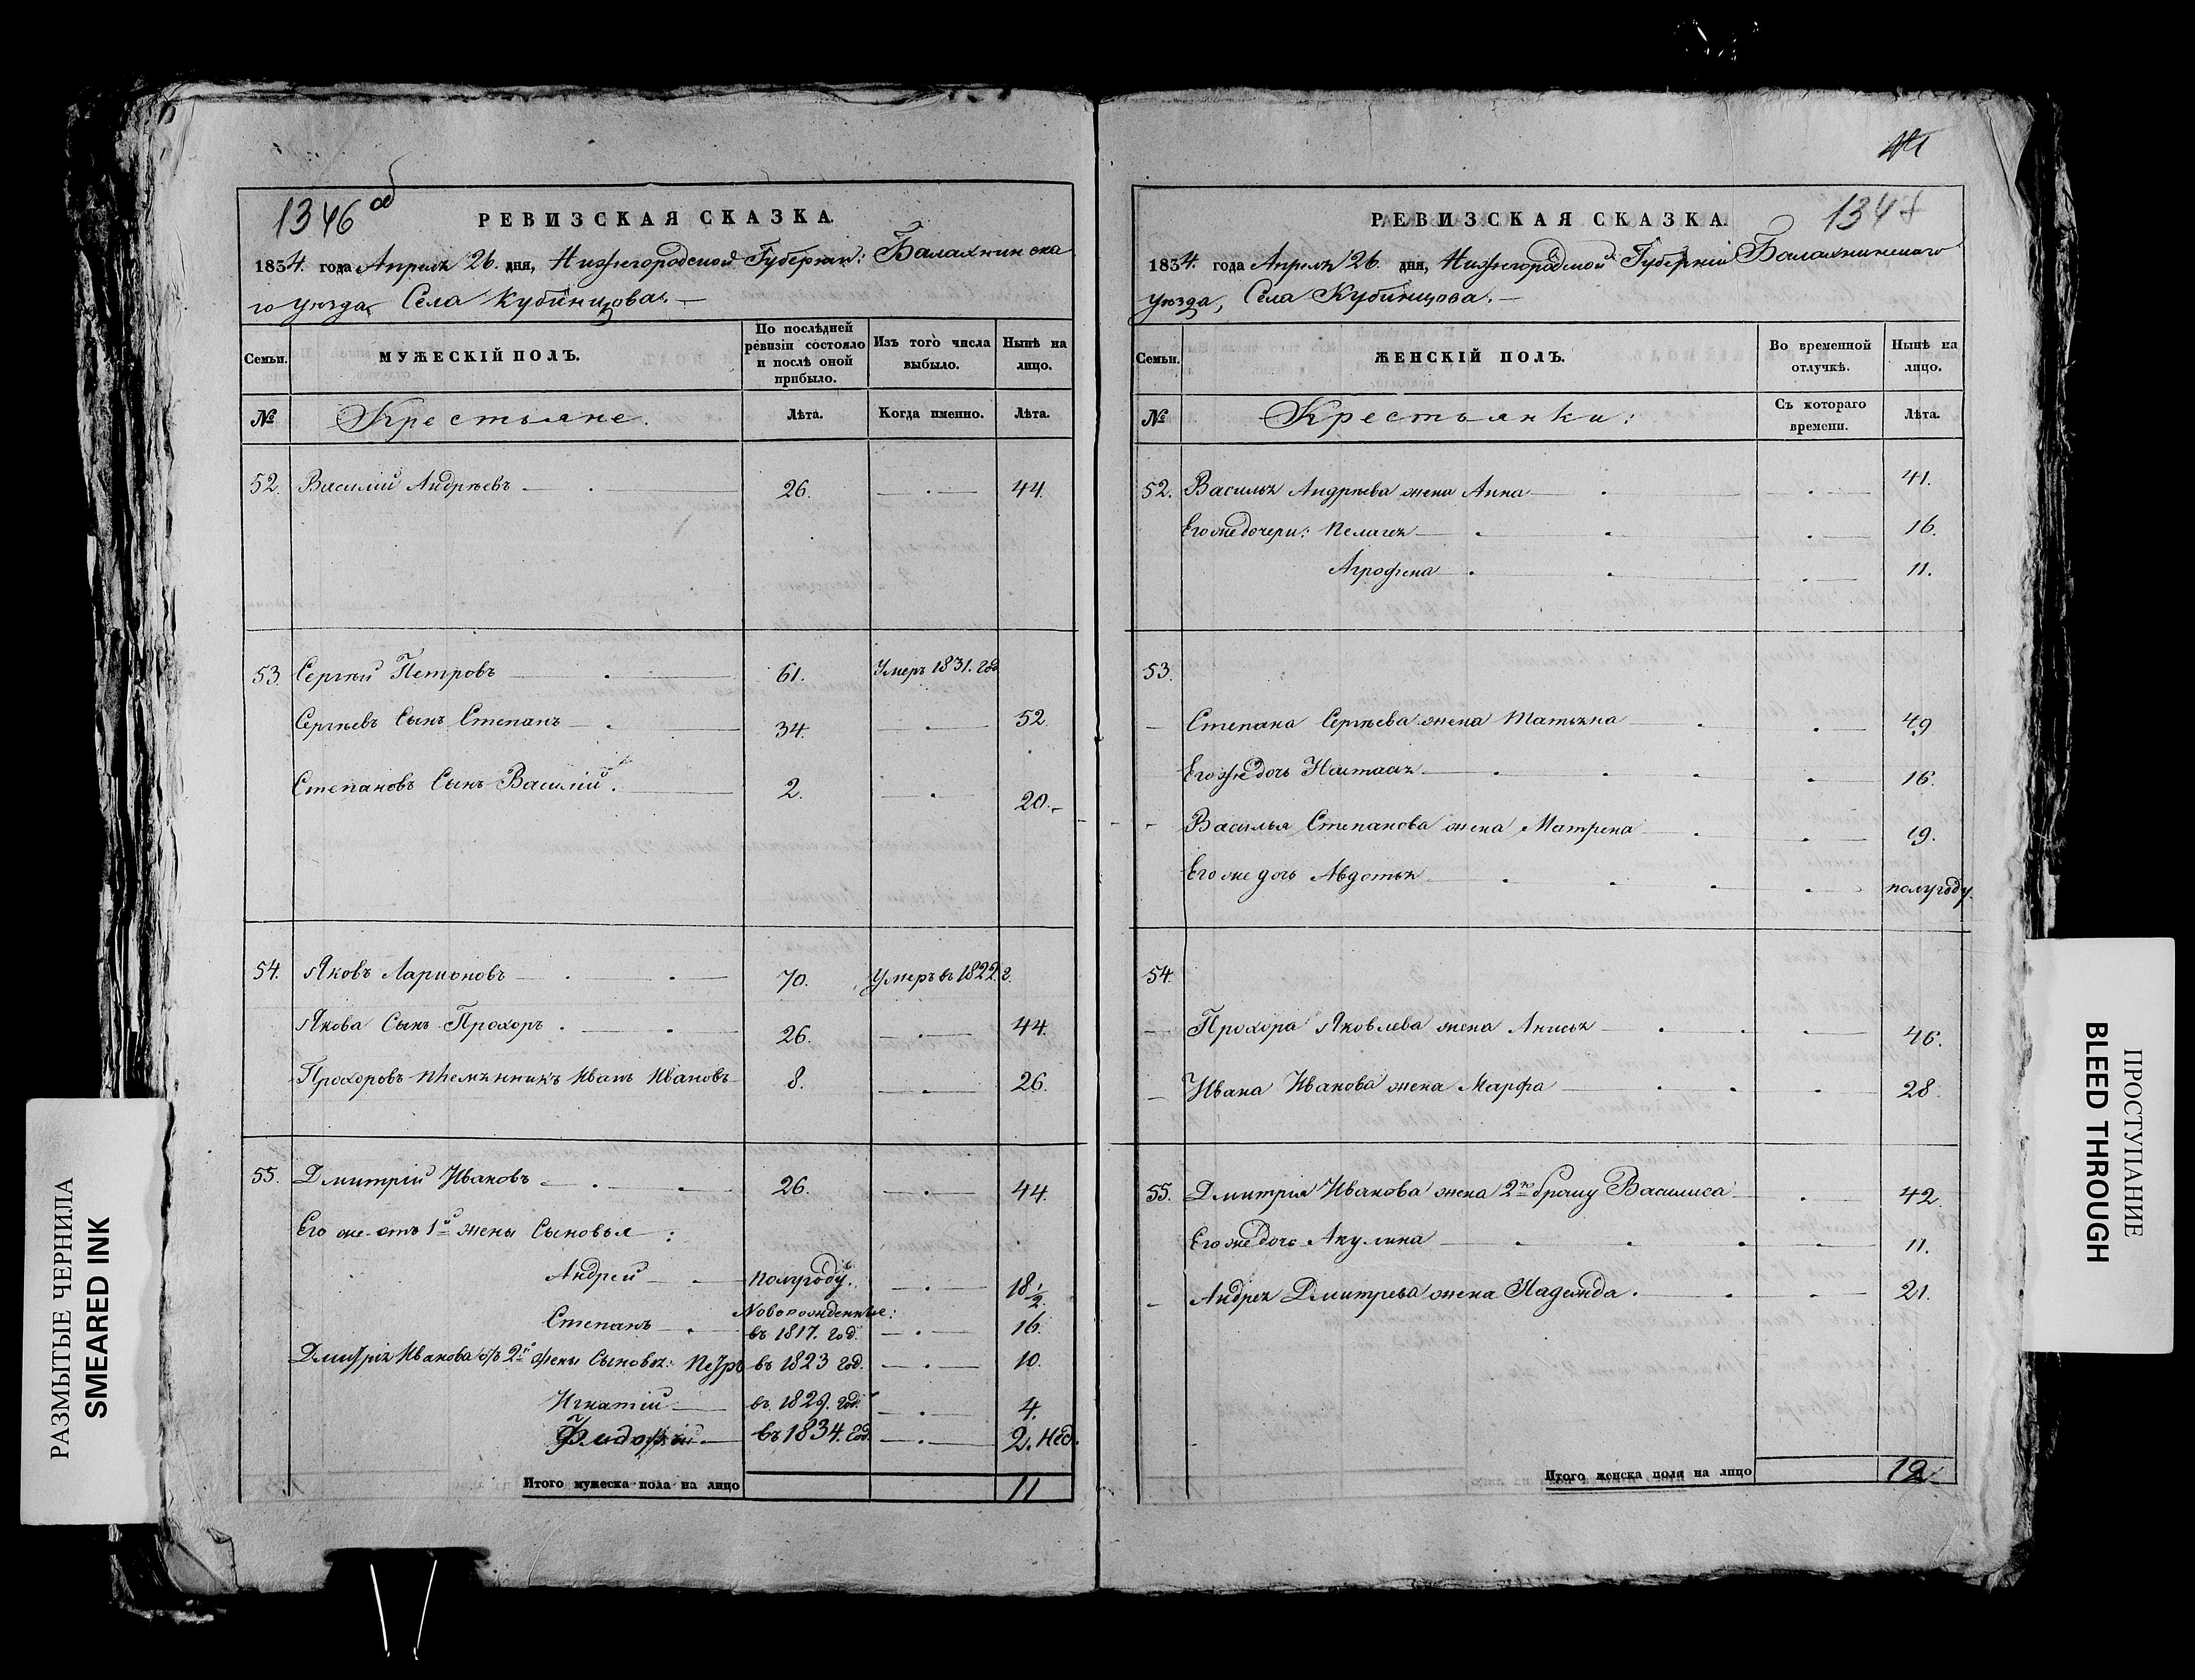 1346 об
РЕВИЗСКАЯ СКАЗКА.
1834. года Апреля 26. дня, Нижегородской Губернии: Балахнинска
го уезда Села Кубинцова. —
Семьи.
МУЖЕСКІЙ ПОЛЪ.
По послѣдней ревизіи состояло и послѣ оной прибыло.
Изъ того числа выбыло.
Нынѣ на лицо.
№
Крестьяне.
Лѣта.
Когда именно.
Лѣта.
52. Василий Андрѣевъ 26. 44.
53. Сергѣй Петровъ 61. Умеръ 1831. год
Сергѣевъ Сынъ Степанъ 34. 52.
Степановъ Сынъ Василій. 2. 20.
54. Яковъ Ларионовъ 70. Умеръ въ 1822. г.
Якова Сынъ Прохоръ. 26. 44.
Прохоровъ племянникъ Иванъ Ивановъ 8. 26.
55. Дмитрій Ивановъ 26. 44.
Его же отъ 1й жены Сыновья:
Андрей полугоду. 18 1/2.
Новорожденные:
Степанъ въ 1817. год. 16.
Дмитрія Иванова отъ 2й жены Сыновья: Петръ въ 1823 год. 10.
Игнатій въ 1829. год. 4.
въ 1834. год. 2. нед.
Итого мужеска пола на лицо 11
1347
РЕВИЗСКАЯ СКАЗКА.
1834. года Апреля 26. дня, Нижегородской Губерніи Балахнинскаго
уезда, Села Кубинцова. —
Семьи.
ЖЕНСКІЙ ПОЛЪ.
Во временной отлучкѣ.
Нынѣ на лицо.
№
Крестьянки:
Съ котораго времени.
Лѣта.
52. Василья Андрѣева жена Анна 41.
Его же дочери: Пелагея 16.
Агрофена 11.
53.
Степана Сергѣева жена Татьяна 49
Его же дочь Настасья 16.
Василья Степанова жена Матрена 19.
Его же дочь Авдотья полугоду.
54.
Прохора Яковлева жена Анисья 46.
Ивана Иванова жена Марфа 28.
55. Дмитрія Иванова жена 2го браку Василиса 42.
Его же дочь Акулина 11.
Андрея Дмитрева жена Надежда. 21.
Итого женска пола на лицо 12
РАЗМЫТЫЕ ЧЕРНИЛА
SMEARED INK
ПРОСТУПАНИЕ
BLEED THROUGH